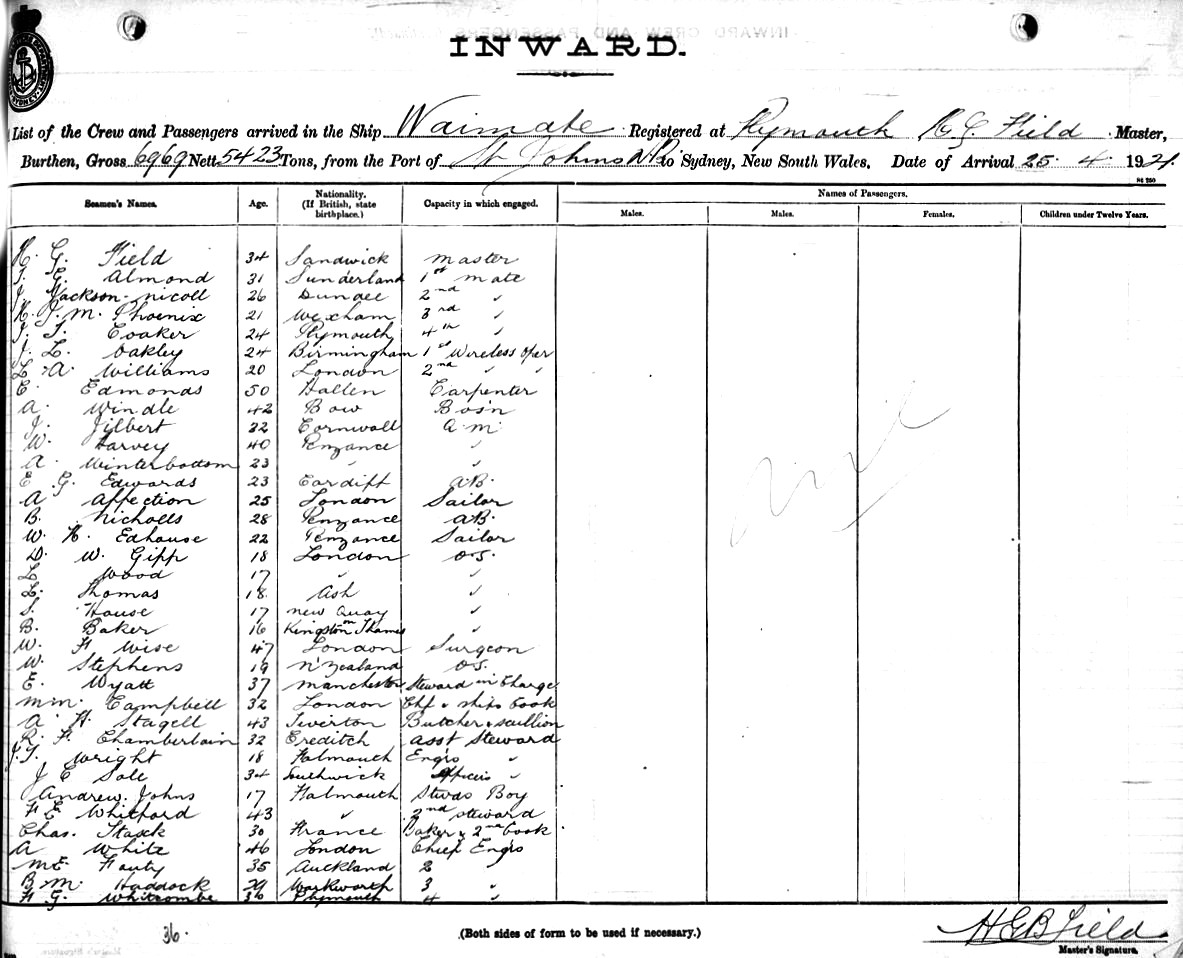 INWARD.
List of the Crew and Passengers arrived in the Ship Waimate Registered at Plymouth H G Field Master,
Burthen, Gross 6969 Nett 5423 Tons, from the Port of St Johns NB to Sydney, New South Wales. Date of Arrival 25. 4. 192
Seamen's Names. Age. Nationality. (If British, state birthplace.) Capacity in which engaged. Names of Passengers.
Males. Males. Females. Children under Twelve Years.
H. G. Field 34 Sandwick Master
G. Almond 31 Sunderland 1st mate
J. Jackson-nicoll 26 Dundee 2nd "
J. M. Phoenix 21 Wexham 3rd "
J. T. Coaker 24 Plymouth 4th "
J. L. Oakley 24 Birmingham 1st Wireless Oper
L. A. Williams 20 London 2nd " "
E. Edmonds 50 Hallen Carpenter
A. Windle 42 Bow Bosn
J. Jilbert 22 Cornwall A.M.
W. Harvey 40 Penzance "
A. Winterbottom 23 " "
E G. Edwards 23 Cardiff AB.
A Affection 25 London Sailor
B. Nicholls 28 Penzance AB.
W. H. Edhouse 22 Penzance Sailor
D. W. Gipp 18 London O.S.
L Wood 17 " "
L. Thomas 18. Ash "
S. House 17 New Quay "
B. Baker 16 Kingston on Thames "
W. F Wise 47 London Surgeon
W. Stephens 19 N'Zealand O.S.
E. Wyatt 37 Manchester Steward in Charge
Wm. Campbell 32 London Chf & ships Cook
A. H. Stagell 43 Tiverton Butcher & scullion
R. F. Chamberlain 32 Creditch asst Steward
J. T. Wright 18 Falmouth Engrs "
J E Sole 34 Southwick Officers "
Andrew Johns 17 Falmouth Stwds Boy
F E Whitford 43 " 2nd steward
Chas. Stasck 30 France Baker & 2nd Cook
A White 46 London Chief Engrs
M E Fauty 35 Auckland 2 "
B. M. Haddock 29 Warkworth 3 "
F G. Whitcombe 36 Plymouth 4 "
nil
36.
(Both sides of form to be used if necessary.)
H G B Field
Master's Signature.